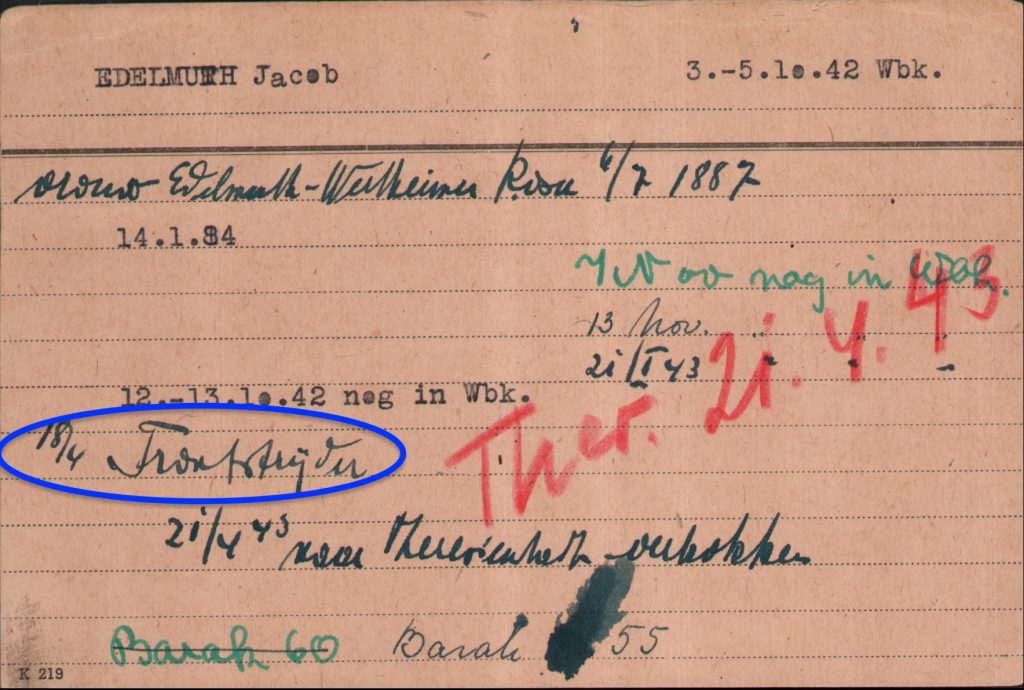 EDELMUTH Jacob 3.-5.10.42 Wbk.
vrouw Edelmuth-Wertheimer Rosa 6/7 1887
14.1.84
7 Nov nog in Wbk.
13 Nov. " " "
21/I 43 " " "
12.-13.10.42 nog in Wbk.
Ther. 21.4.43
18/4 Frontstrijder
21/4 43 naar Theresienstadt vertrokken
Barak 60 Barak 55
K 219